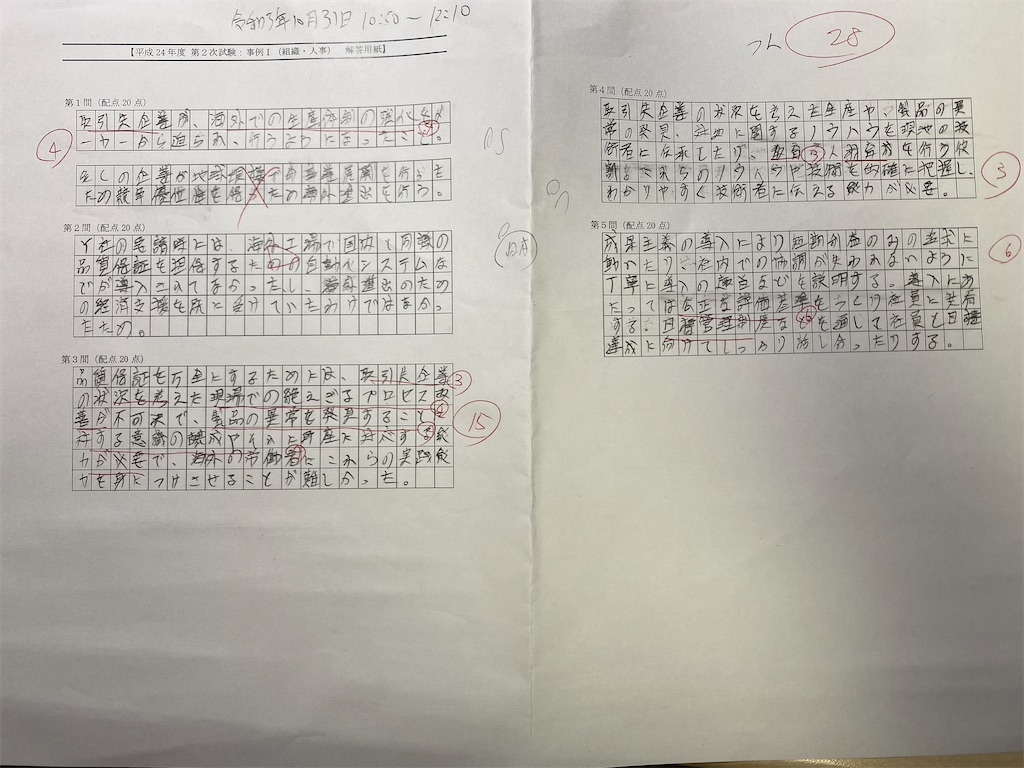 令和3年10月31日 10:50〜12:10
【平成24年度 第2次試験：事例Ⅰ（組織・人事） 解答用紙】
第1問（配点20点）
取引先企業が、海外での生産体制の強化をメ
ーカーから迫られ、行うようになったこと。
多くの企業が地球規模での事業展開を行うた
めの競争優位性を
海外進出を行う。
4
第2問（配点20点）
Y社の
時には、海外工場で国内と同等の
品質保証を担保するための自動化システムな
どが導入されてなかったし、海外進出のため
の経済支援を既に受けていたわけではなかっ
たため。
第3問（配点20点）
品質保証を万全にするためには、取引先企業
の状況を考えた現場での絶えざるプロセス改
善が不可欠で、製品の異常を発見することに
対する意識の醸成や
に対応する能
力が必要で、海外の労働者にこれらの実践能
力を身につけさせることが難しかった。
3
15
28
第4問（配点20点）
取引先企業の状況を考えた生産や、製品の異
常の発見、対処に関するノウハウを現地の技
術者に伝承したり、
人材育成を行う役
これらのノウハウや技術を的確に把握し、
わかりやすく技術者に伝える能力が必要。
3
第5問（配点20点）
成果主義の導入により短期利益のみの追求に
動いたり、社内での協調が失われないように
丁寧に導入の趣旨などを説明する。導入にあ
たっては公正な評価基準をつくり社員に共有
する。目標管理制度などを通して社員と目標
達成に向けてしっかり話し合ったりする。
6